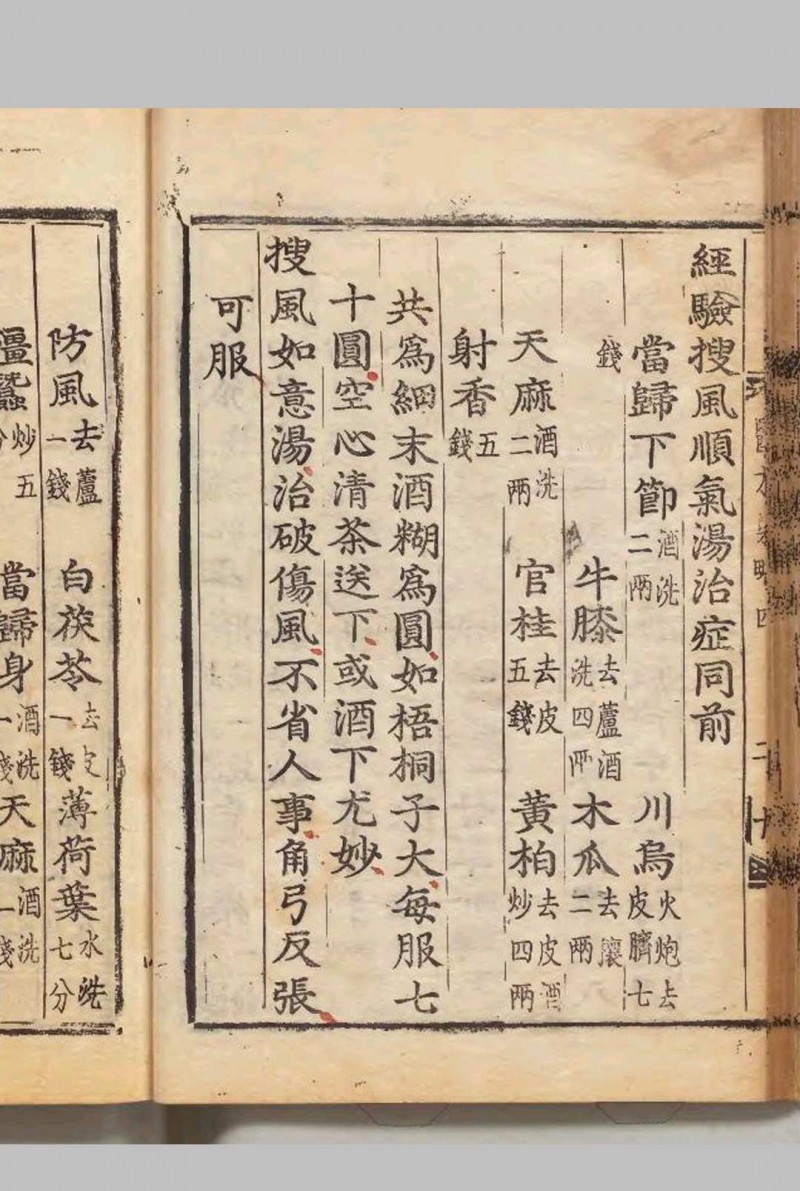 經驗搜風順氣湯治症同前
當歸下節酒洗二兩 川烏火炮去皮臍七
錢 牛膝去蘆酒洗四兩 木瓜去瓤二兩
天麻酒洗二兩 官桂去皮五錢 黃柏去皮酒炒四兩
射香五錢
共爲細末酒糊爲圓如梧桐子大每服七
十圓空心清茶送下或酒下尤妙
搜風如意湯治破傷風不省人事角弓反張
可服
防風去蘆一錢 白茯苓去皮一錢 薄荷葉水洗七分
殭蠶炒五分 當歸身酒洗一錢 天麻酒洗一錢